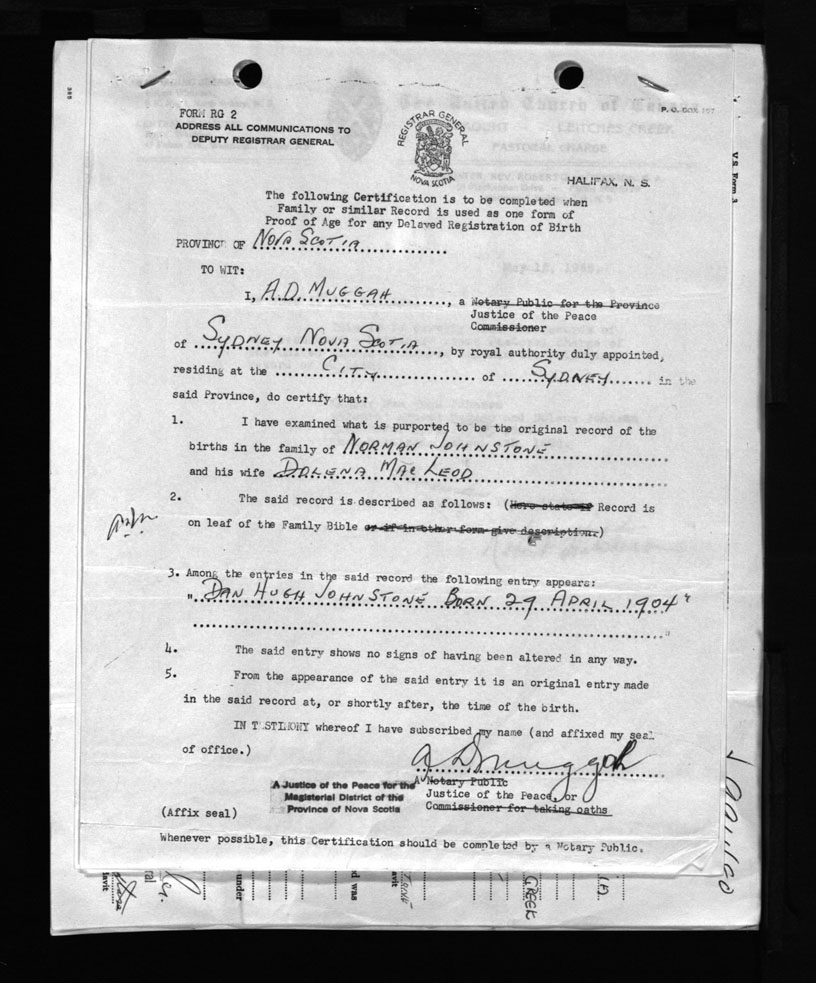 FORM RG 2
ADDRESS ALL COMMUNICATIONS TO
DEPUTY REGISTRAR GENERAL
REGISTRAR GENERAL
NOVA SCOTIA
P. O. BOX 157
HALIFAX, N. S.
V.S. Form 3
The following Certification is to be completed when
Family or similar Record is used as one form of
Proof of Age for any Delayed Registration of Birth
PROVINCE OF NOVA SCOTIA
TO WIT:
I, A.D. MUGGAH, a Notary Public for the Province
Justice of the Peace
Commissioner
of SYDNEY NOVA SCOTIA, by royal authority duly appointed,
residing at the CITY of SYDNEY in the
said Province, do certify that:
1. I have examined what is purported to be the original record of the
births in the family of NORMAN JOHNSTONE
and his wife DOLENA MACLEOD
2. The said record is described as follows: (Here state if Record is
on leaf of the Family Bible or if in other form give description.)
3. Among the entries in the said record the following entry appears:
"DAN HUGH JOHNSTONE BORN 29 APRIL 1904"
"
4. The said entry shows no signs of having been altered in any way.
5. From the appearance of the said entry it is an original entry made
in the said record at, or shortly after, the time of the birth.
IN TESTIMONY whereof I have subscribed my name (and affixed my seal
of office.)
A D Muggah
A Notary Public
Justice of the Peace, or
Commissioner for taking oaths
A Justice of the Peace for the
Magisterial District of the
Province of Nova Scotia
(Affix seal)
Whenever possible, this Certification should be completed by a Notary Public.
under
d was
CREEK